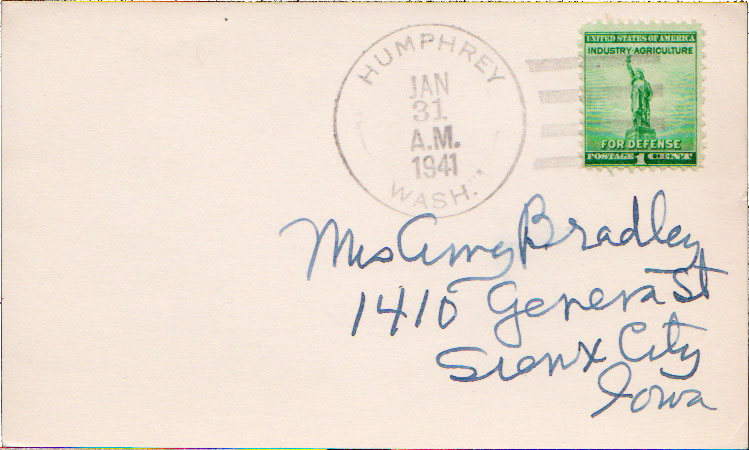 HUMPHREY
JAN
31
A.M.
1941
WASH.
UNITED STATES OF AMERICA
INDUSTRY-AGRICULTURE
FOR DEFENSE
POSTAGE 1 CENT
Mrs Amy Bradley
1410 Geneva St
Sioux City
Iowa